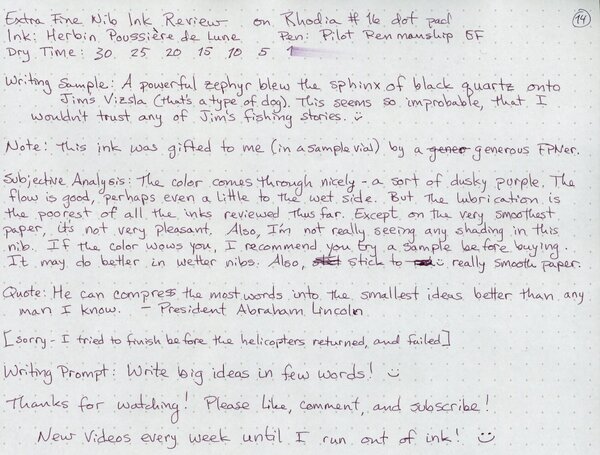 Extra Fine Nib Ink Review on Rhodia #16 dot pad 14
Ink: Herbin Poussière de Lune Pen: Pilot Penmanship EF
Dry Time: 30 25 20 15 10 5 1
Writing Sample: A powerful zephyr blew the sphinx of black quartz onto
Jims Vizsla (that's a type of dog). This seems so improbable, that I
wouldn't trust any of Jim's fishing stories. :)
Note: This ink was gifted to me (in a sample vial) by a gener generous FPNer.
Subjective Analysis: The color comes through nicely - a sort of dusky purple. The
flow is good, perhaps even a little to the wet side. But the lubrication is
the poorest of all the inks reviewed thus far. Except on the very smoothest
paper, it's not very pleasant. Also, I'm not really seeing any shading in this
nib. If the color wows you, I recommend you try a sample before buying.
It may do better in wetter nibs. Also, stick to :) really smooth paper.
Quote: He can compress the most words into the smallest ideas better than any
man I know. - President Abraham Lincoln
[sorry - I tried to finish before the helicopters returned, and failed]
Writing Prompt: Write big ideas in few words! :)
Thanks for watching! Please like, comment, and subscribe!
New Videos every week until I run out of ink! :)